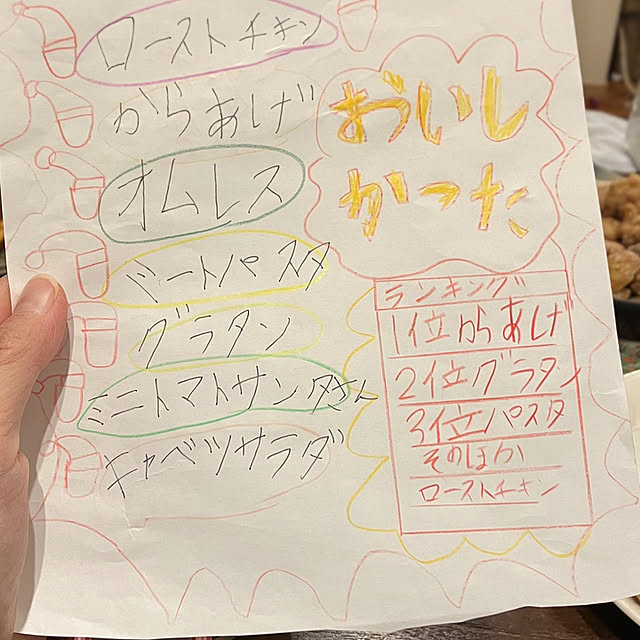 ローストチキン
からあげ
オムレス
ミートパスタ
グラタン
ミニトマトサンタさん
キャベツサラダ
おいし
かった
ランキング
1位からあげ
2位グラタン
3位パスタ
そのほか
ローストチキン